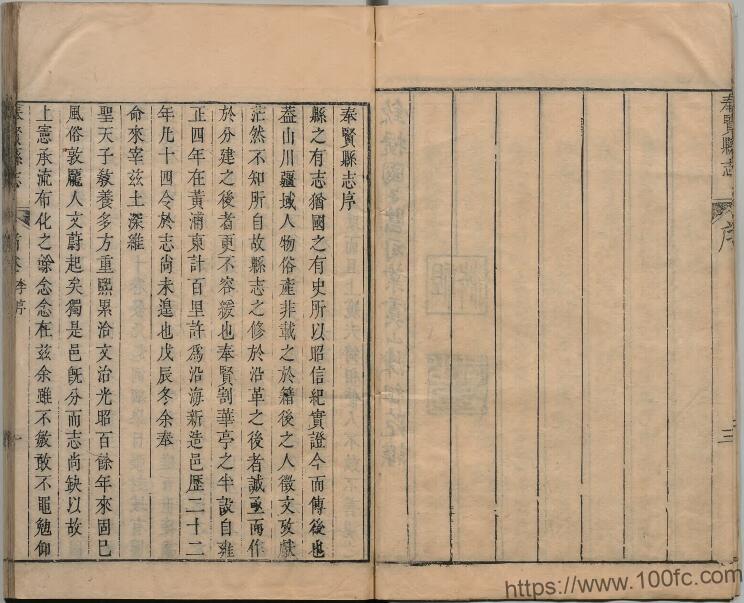 奉賢縣志
序
三
奉賢縣志序
縣之有志猶國之有史所以昭信紀實證今而傳後也
葢山川疆域人物俗產非載之於籍後之人徵文攷獻
茫然不知所自故縣志之修於沿革之後者誠亟而作
於分建之後者更不容緩也奉賢割華亭之半設自雍
正四年在黃浦東計百里許爲沿海新造邑歷二十二
年凡十四令於志尚未遑也戊辰冬余奉
命來宰兹土深維
聖天子敎養多方重熙累洽文治光昭百餘年來固巳
風俗敦龐人文蔚起矣獨是邑旣分而志尚缺以故
上憲承流布化之餘念念在兹余雖不敏敢不黽勉仰
奉賢縣志
序
一
https://www.100fc.com